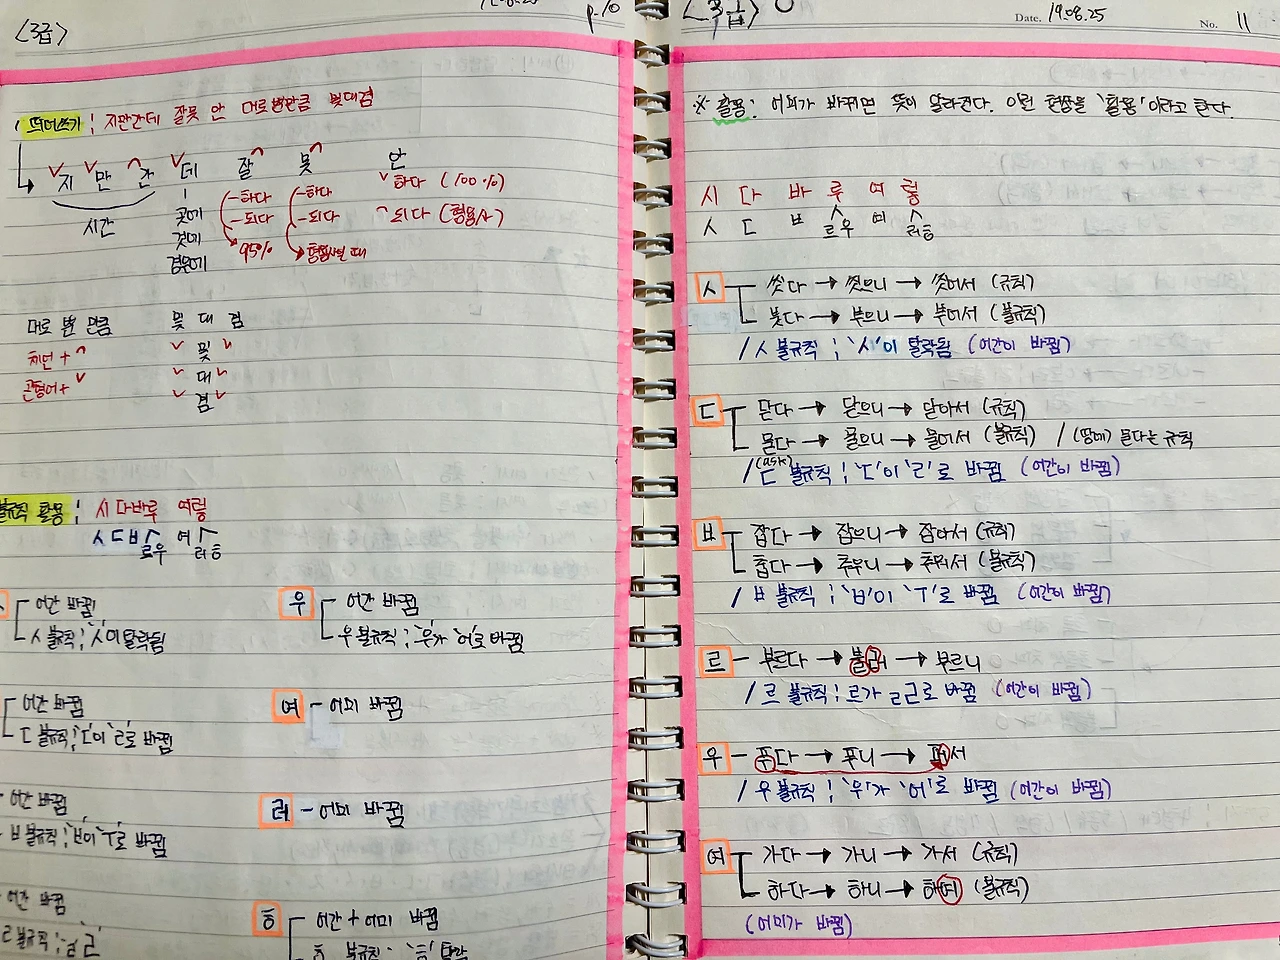 <3급>
p.10
띄어쓰기 : 지만간데 잘못 안 대로뿐만큼 및대겸
∨지 ∨만 ⌒간 ∨데 잘⌒ 못⌒ 안
시간
곳에
것에
경우에
-하다
-되다
95%
-하다
-되다
형용사일 때
∨하다 (100%)
⌒되다 (형용사)
대로 뿐 만큼 및 대 겸
체언 + ⌒
∨ 및 ∨
∨ 대 ∨
∨ 겸 ∨
불규칙 활용 : 시다바루 여렇
ㅅㄷㅂ르우 여 러ㅎ
어간 바뀜
ㅅ 불규칙 ; 'ㅅ'이 탈락됨
우 어간 바뀜
우 불규칙 ; '우'가 '어'로 바뀜
어간 바뀜
ㄷ 불규칙 ; 'ㄷ'이 'ㄹ'로 바뀜
여 - 어미 바뀜
어간 바뀜
ㅂ 불규칙 ; 'ㅂ'이 'ㅜ'로 바뀜
러 - 어미 바뀜
어간 바뀜
ㅎ 어간 + 어미 바뀜
ㅎ 불규칙 'ㅎ' 탈락
<3급>
Date. 19.08.25 No. 11
※ 활용 : 어미가 바뀌면 뜻이 달라진다. 이런 현상을 '활용'이라고 한다.
시 다 바 루 여 렇
ㅅ ㄷ ㅂ 르우 여 러ㅎ
ㅅ 씻다 → 씻으니 → 씻어서 (규칙)
붓다 → 부으니 → 부어서 (불규칙)
/ ㅅ 불규칙 ; 'ㅅ'이 탈락됨 (어간이 바뀜)
ㄷ 닫다 → 닫으니 → 닫아서 (규칙)
묻다 → 물으니 → 물어서 (불규칙) / (땅에) 묻다는 규칙
(ask)
/ ㄷ 불규칙 ; 'ㄷ'이 'ㄹ'로 바뀜 (어간이 바뀜)
ㅂ 잡다 → 잡으니 → 잡아서 (규칙)
춥다 → 추우니 → 추워서 (불규칙)
/ ㅂ 불규칙 ; 'ㅂ'이 'ㅜ'로 바뀜 (어간이 바뀜)
르 - 부르다 → 불러 → 부르니
/ 르 불규칙 ; 르가 ㄹㄹ로 바뀜 (어간이 바뀜)
우 - 푸다 → 푸니 → 퍼서
/ 우 불규칙 ; '우'가 '어'로 바뀜 (어간이 바뀜)
여 가다 → 가니 → 가서 (규칙)
하다 → 하니 → 하여 (불규칙)
(어미가 바뀜)